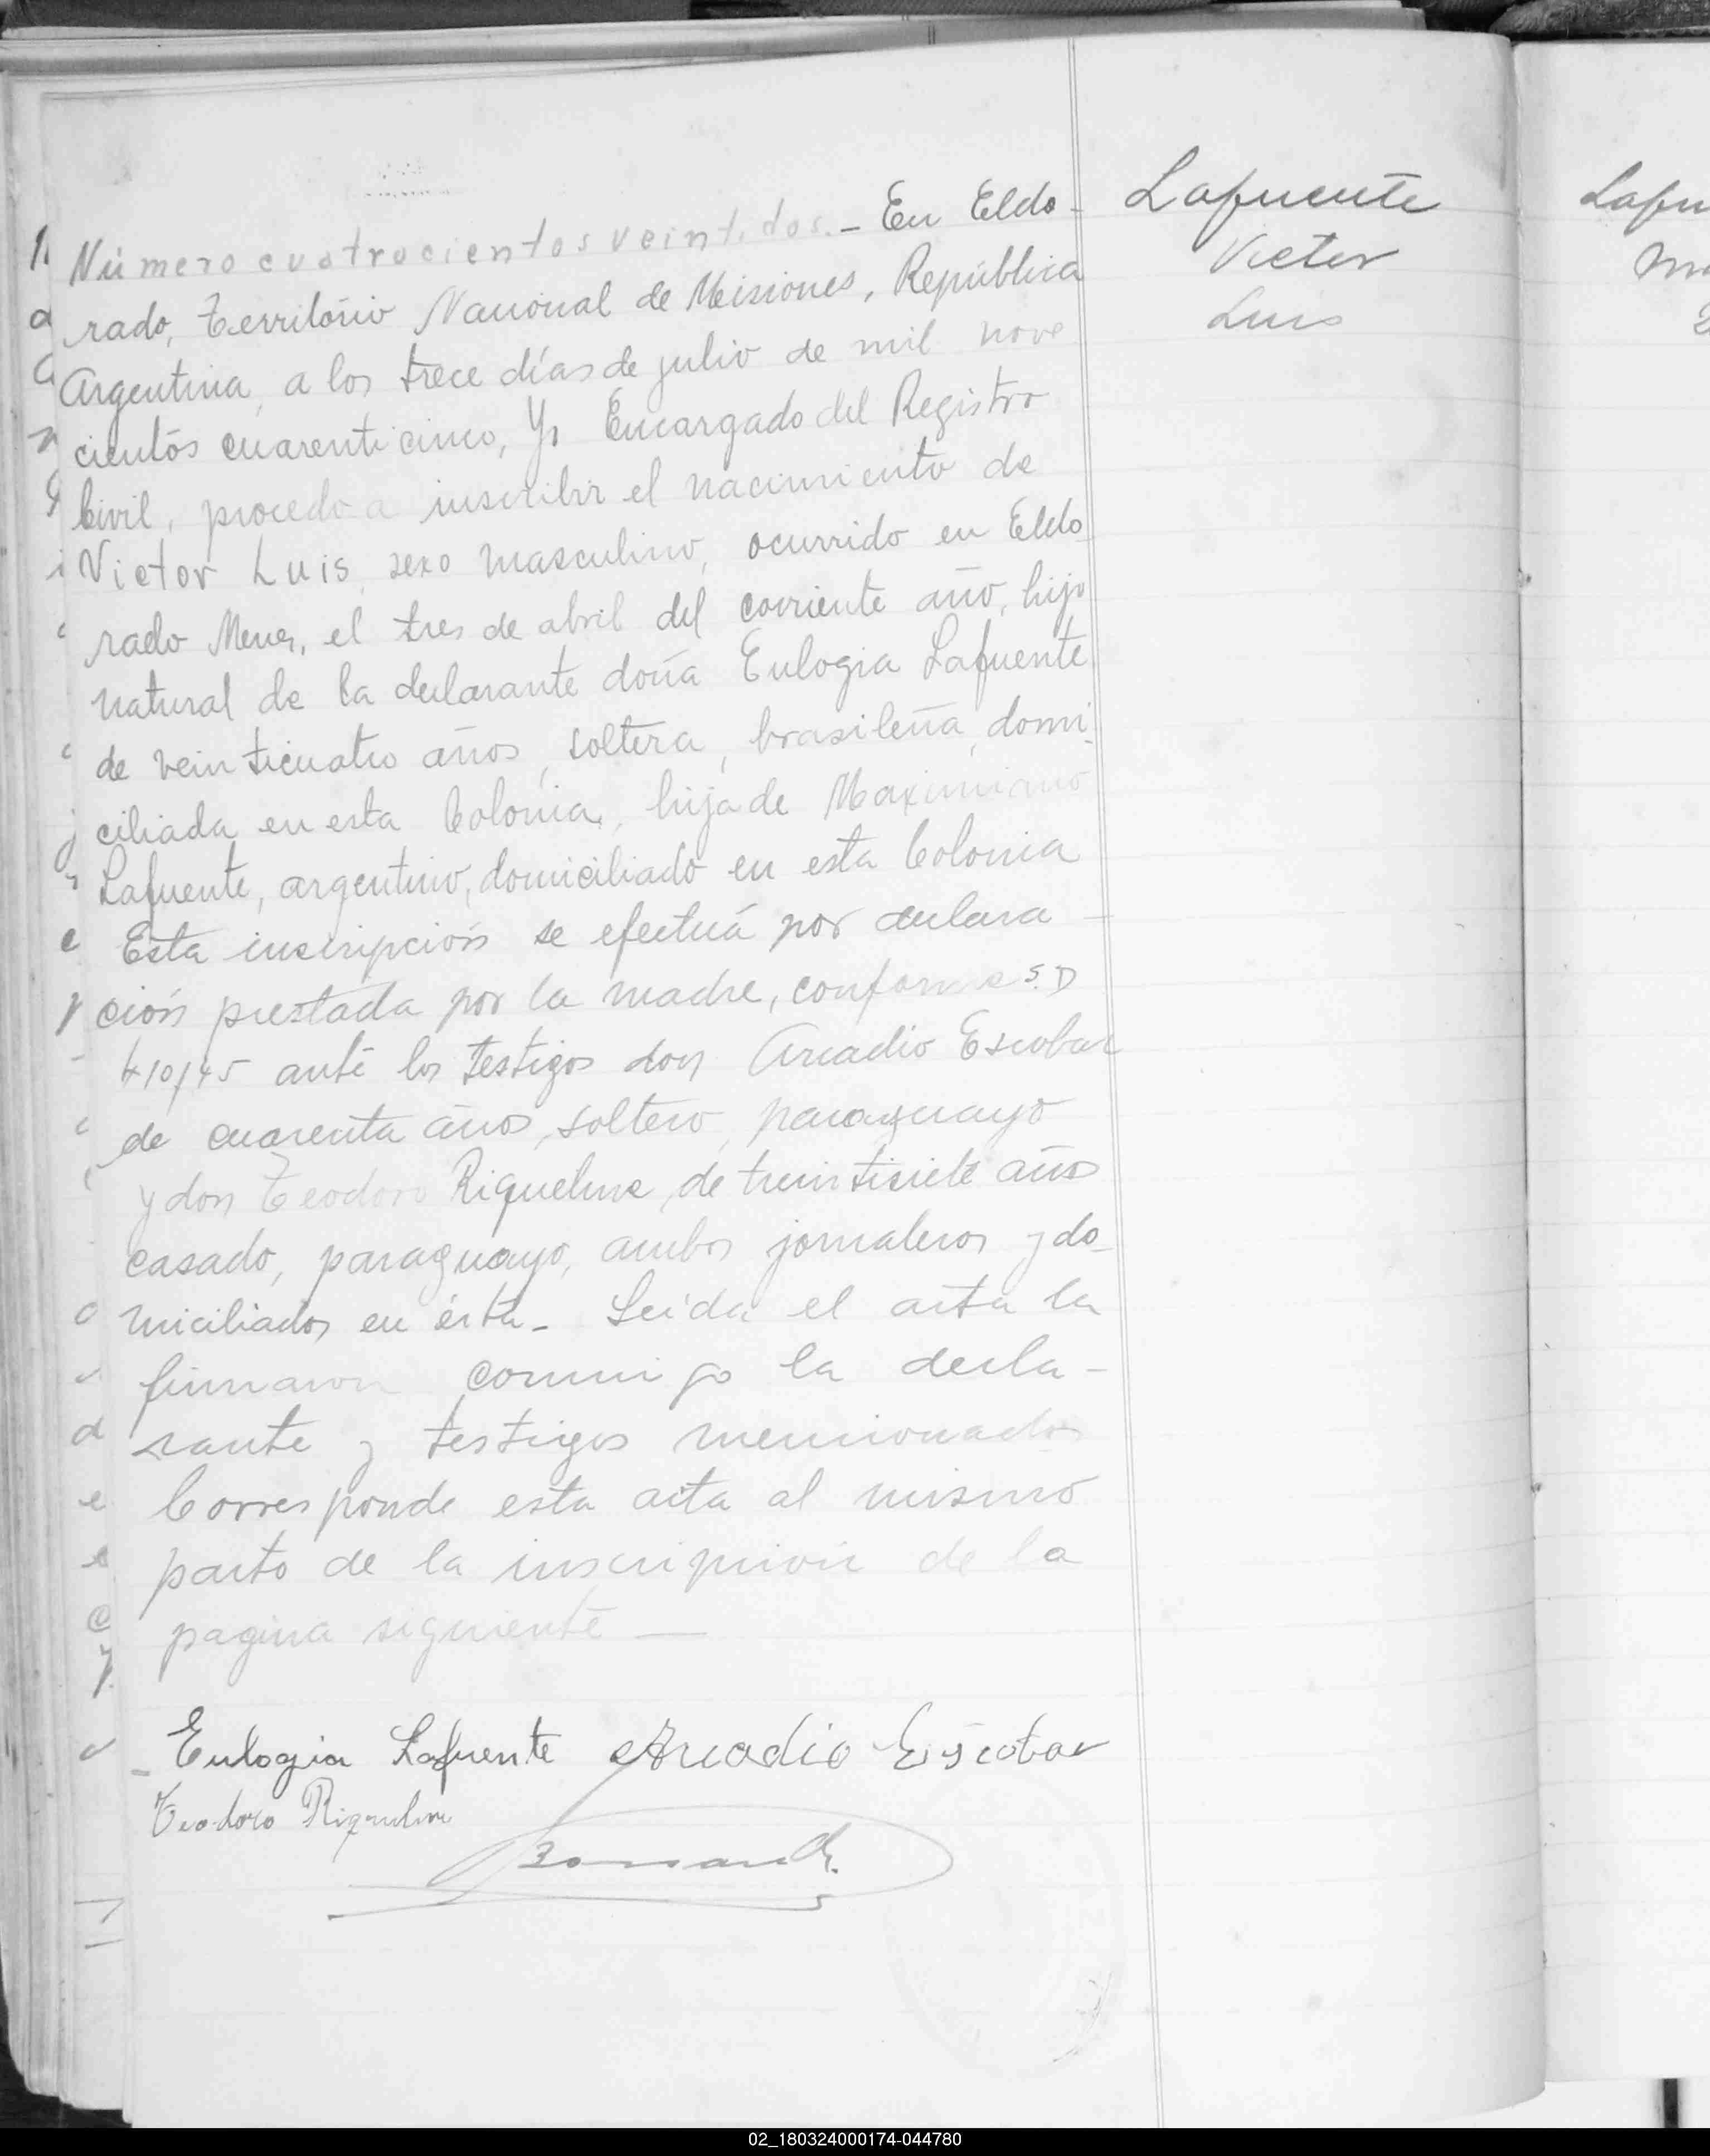 Número cuatrocientos veintidos.- En Eldo-
rado, Territorio Nacional de Misiones, República
Argentina, a los trece días de julio de mil nove
cientos cuarenticinco, Yo Encargado del Registro
Civil, procedo a inscribir el nacimiento de
Victor Luis, sexo masculino, ocurrido en Eldo
rado Mnes, el tres de abril del corriente año, hijo
natural de la declarante doña Eulogia Lafuente
de veinticuatro años, soltera, brasileña, domi
ciliada en esta Colonia, hija de Maximiano
Lafuente, argentino, domiciliado en esta Colonia
Esta inscripción se efectuá por declara-
ción prestada por la madre, conforme S.D
410/45 ante los testigos don Arcadio Escobar
de cuarenta años, soltero, paraguayo
y don Teodoro Riquelme, de treintisiete años
casado, paraguayo, ambos jornaleros y do-
miciliados en ésta- Leída el acta la
firmaron conmigo la decla-
rante y testigos mencionados
Corresponde esta acta al mismo
parto de la inscripción de la
pagina siguiente —
Eulogia Lafuente Arcadio Escobar
Teodoro Riquelme
Lafuente
Victor
Luis
Lafu
02_180324000174-044780